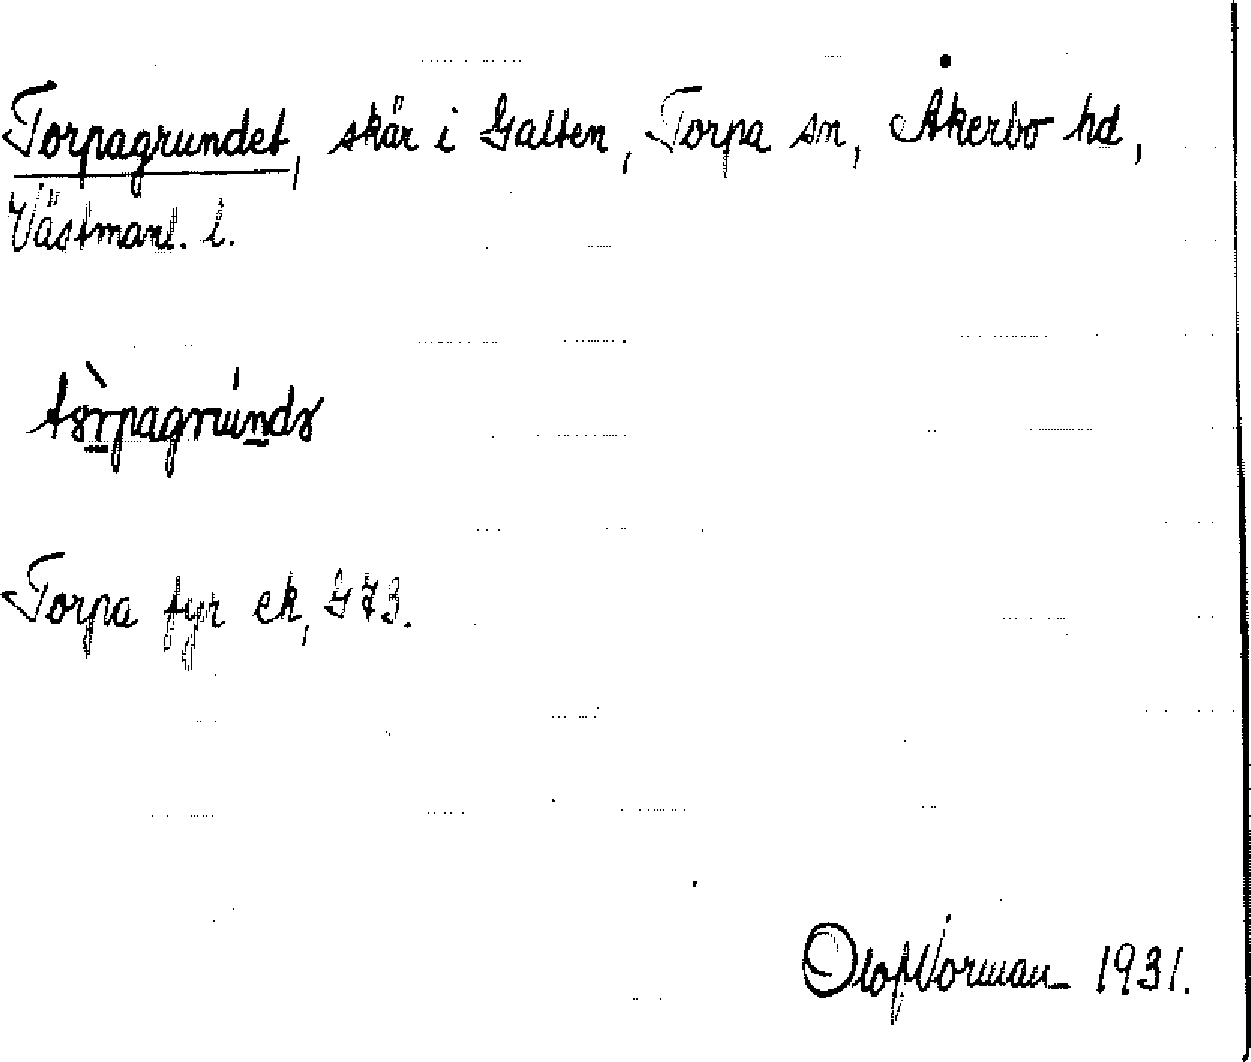 Torpagrundet, skär i Galten, Torpa sn, Åkerbo hd,
Västmanl. l.
Torpa fyr ek, G 73.
Olof Norman 1931.